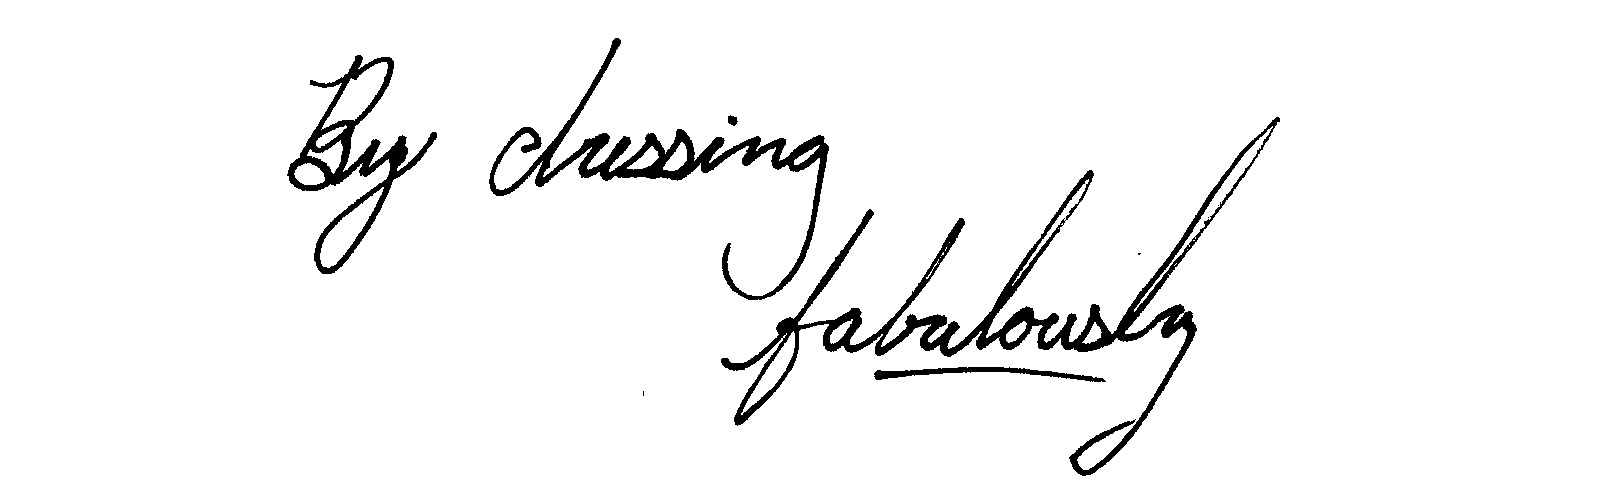 By dressing
fabulously